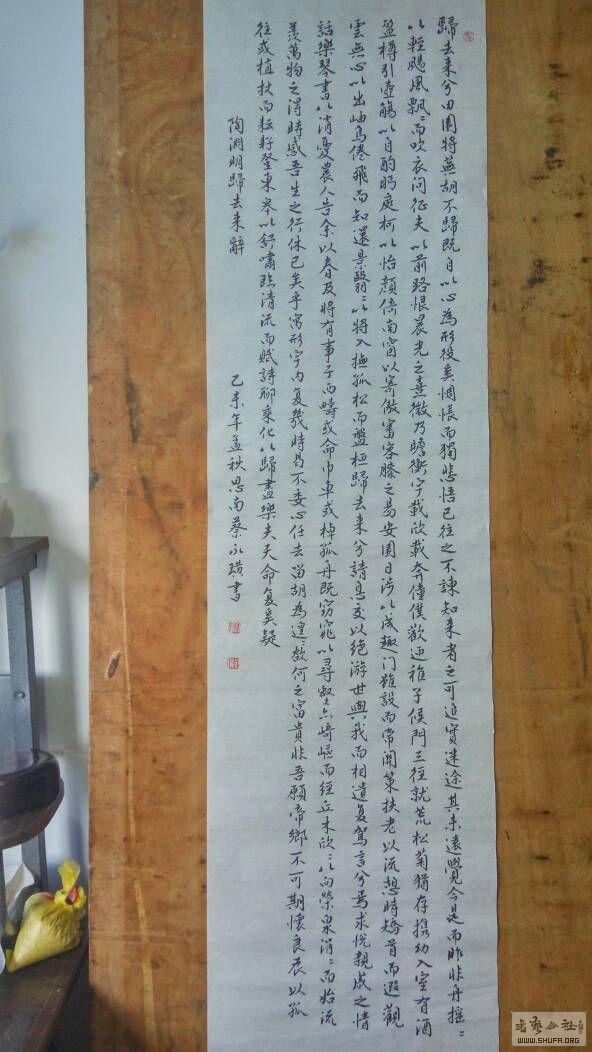 歸去来兮田園将蕪胡不歸既自以心為形役奚惆悵而獨悲悟已往之不諫知来者之可追實迷途其未遠覺今是而昨非舟摇〻
以輕颺風飘〻而吹衣问征夫以前路恨晨光之熹微乃瞻衡宇載欣載奔僮僕歡迎稚子候門三徑就荒松菊猶存携幼入室有酒
盈樽引壺觴以自酌眄庭柯以怡顏倚南窗以寄傲審容膝之易安園日涉以成趣门雖設而常関策扶老以流憩時矯首而遐觀
雲無心以出岫鳥倦飛而知還景翳〻以將入撫孤松而盤桓歸去来兮請息交以绝游世與我而相遺复駕言兮焉求悦親戚之情
話樂琴書以消憂農人告余以春及将有事于西疇或命巾車或棹孤舟既窈窕以尋壑亦崎嶇而经丘木欣〻以向榮泉涓〻而始流
羨萬物之得時感吾生之行休已矣乎寓形宇内复幾時曷不委心任去留胡為遑〻欲何之富貴非吾願帝鄉不可期懷良辰以孤
往或植杖而耘耔登東皋以舒嘯臨清流而賦詩聊乘化以歸盡樂夫天命复奚疑
陶淵明歸去来辭
乙未年孟秋思南蔡永璜書
WWW.SHUFA.ORG